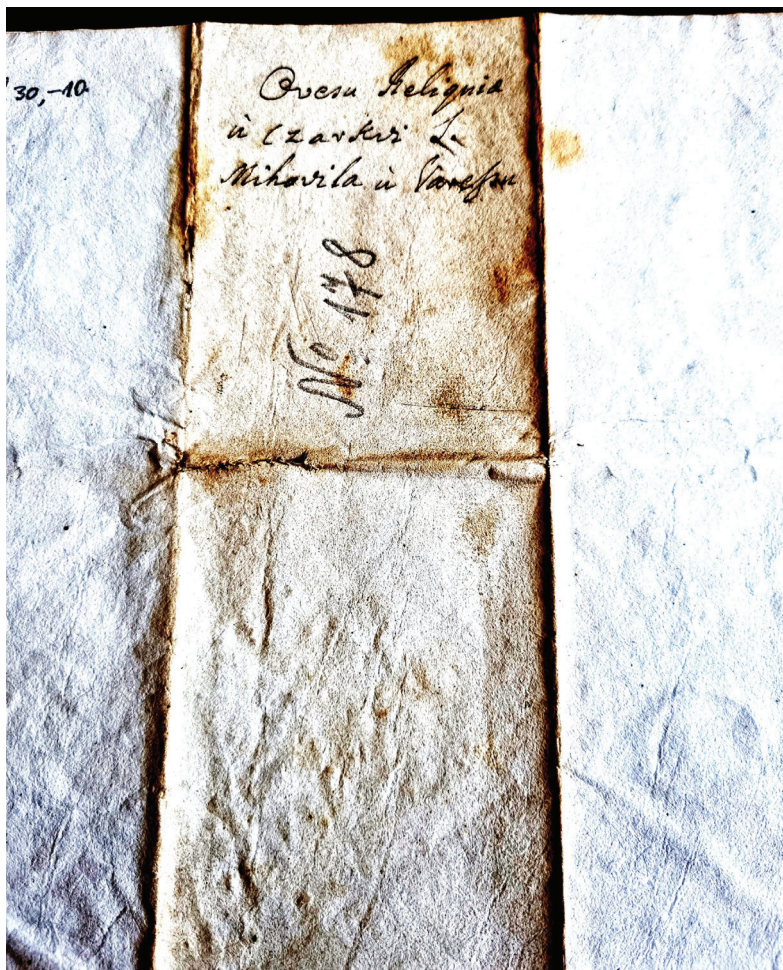 30,-10.
Ovesu Reliquia
ù Czarkvi S.
Mihovila ù Varessu
No. 178